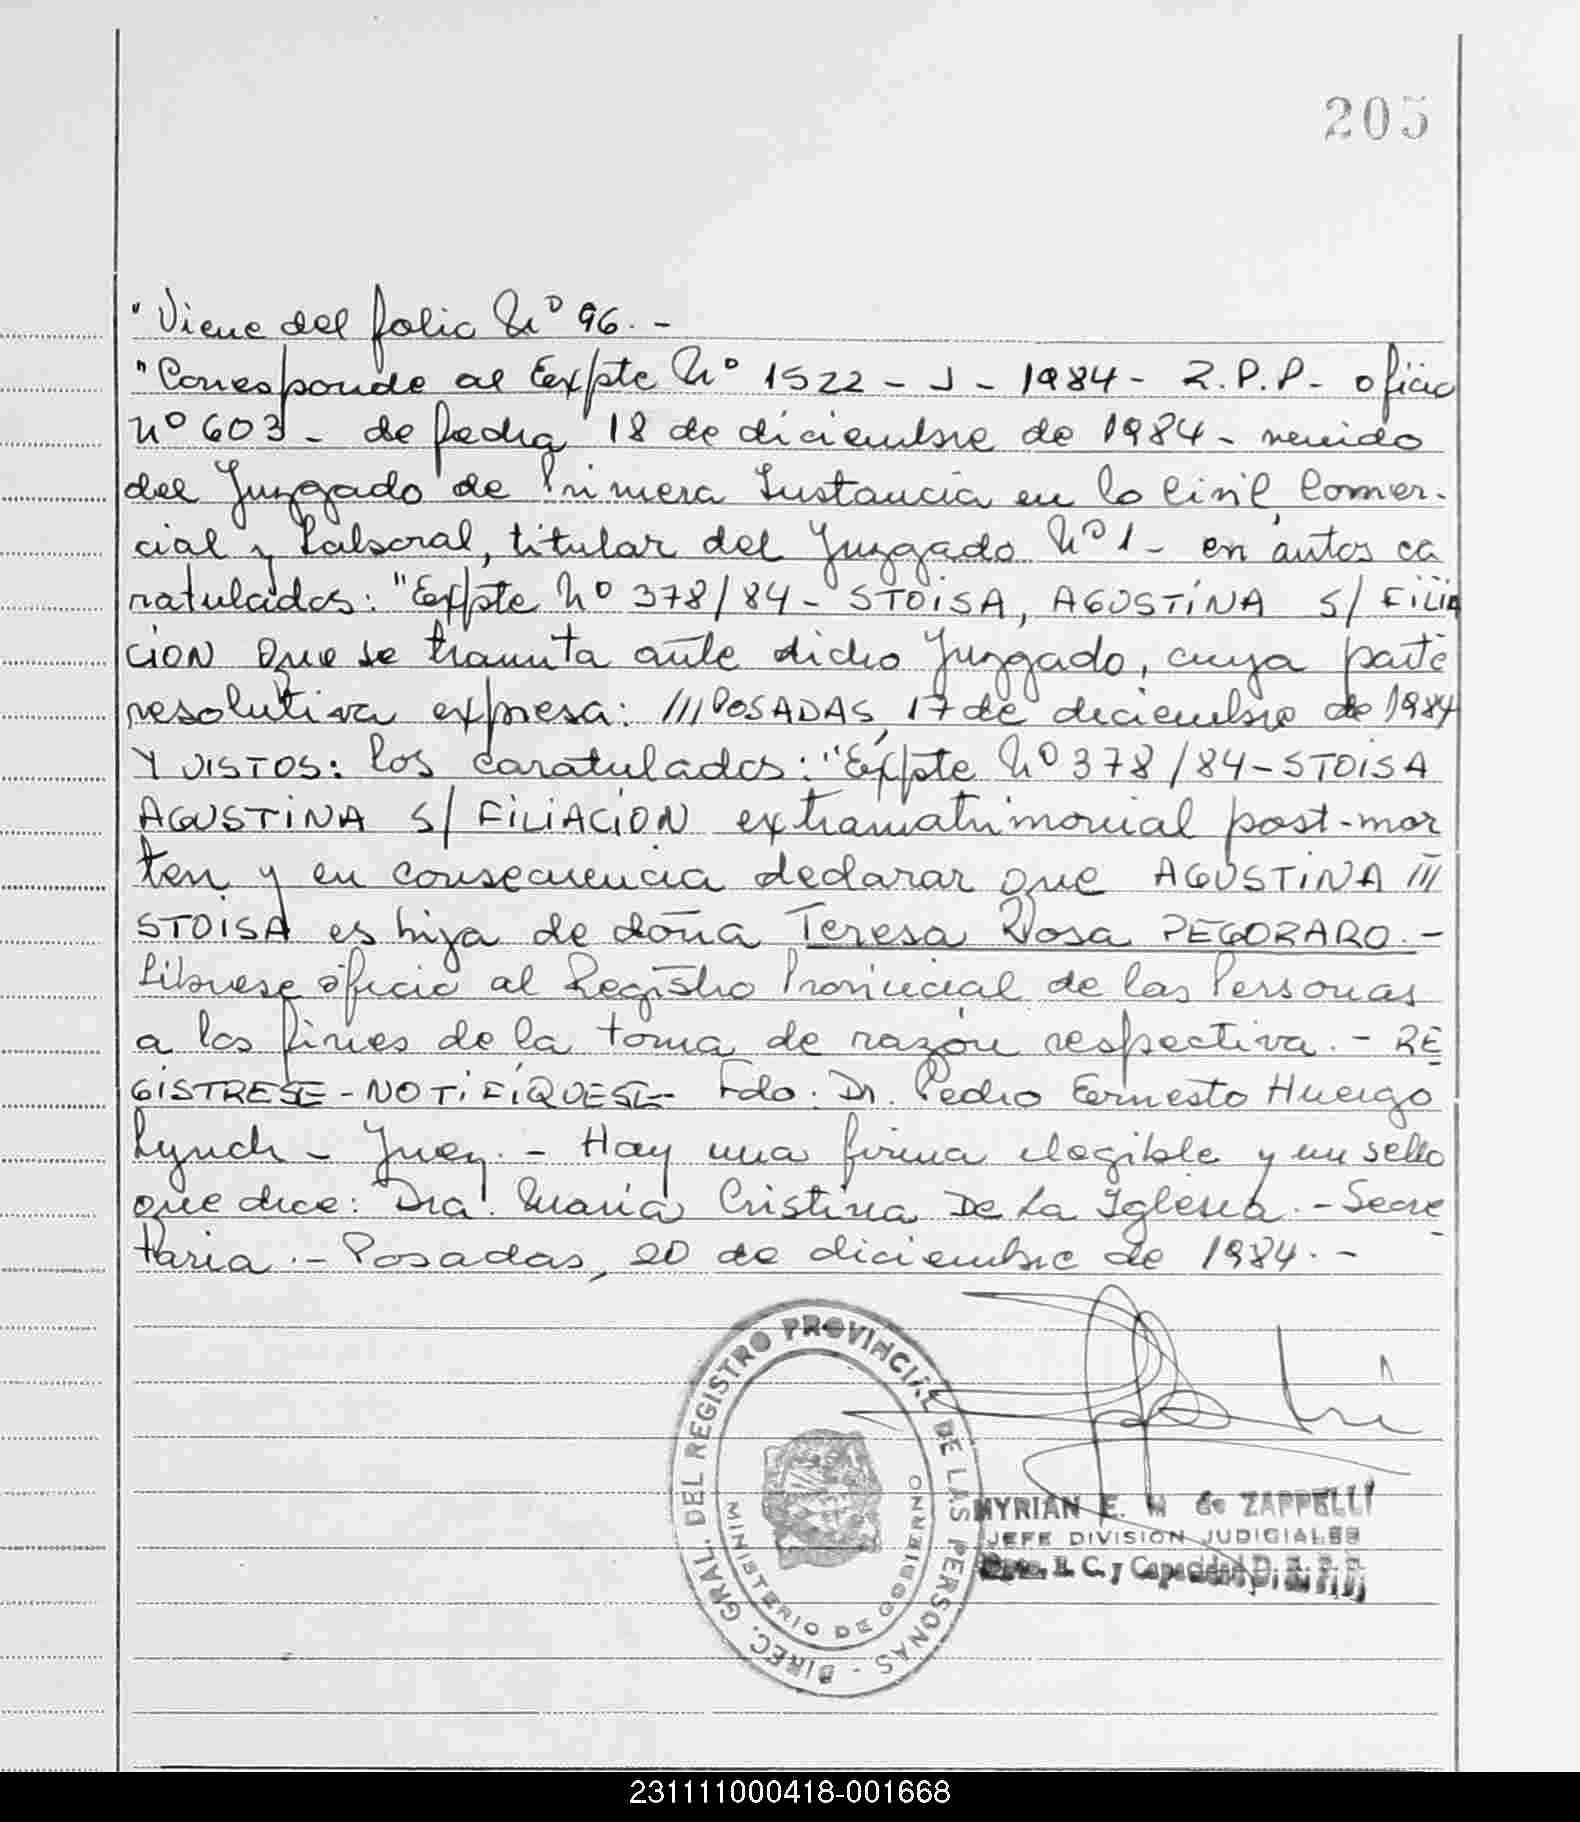 205
"Viene del folio Nº 96.-
"Corresponde al Expte Nº 1522 - J - 1984 - R.P.P - oficio
Nº 603 - de fecha 18 de diciembre de 1984 - venido
del Juzgado de Primera Instancia en lo Civil, Comer-
cial y Laboral, titular del Juzgado Nº 1 - en autos ca
ratulados: "Expte Nº 378/84 - STOISA, AGUSTINA S/ FILIA
CION que se tramita ante dicho Juzgado, cuya parte
resolutiva expresa: ///POSADAS, 17 de diciembre de 1984
Y VISTOS: los caratulados: "Expte Nº 378/84 - STOISA
AGUSTINA S/ FILIACION extramatrimonial post-mor
ten y en consecuencia declarar que AGUSTINA ///
STOISA es hija de doña Teresa Rosa PEGORARO.-
Librese oficio al Registro Provincial de las Personas
a los fines de la toma de razón respectiva.- RE
GISTRESE - NOTIFIQUESE - Fdo: Dr. Pedro Ernesto Huergo
Lynch - Juez.- Hay una firma ilegible y un sello
que dice: Dra. María Cristina De La Iglesia.- Secre
taria.- Posadas, 20 de diciembre de 1984.-
DIREC. GRAL. DEL REGISTRO PROVINCIAL DE LAS PERSONAS -
MINISTERIO DE GOBIERNO
MYRIAN E. M de ZAPPELLI
JEFE DIVISION JUDICIALES
Dpto. E. C. y Capacidad D. R. P. P.
231111000418-001668